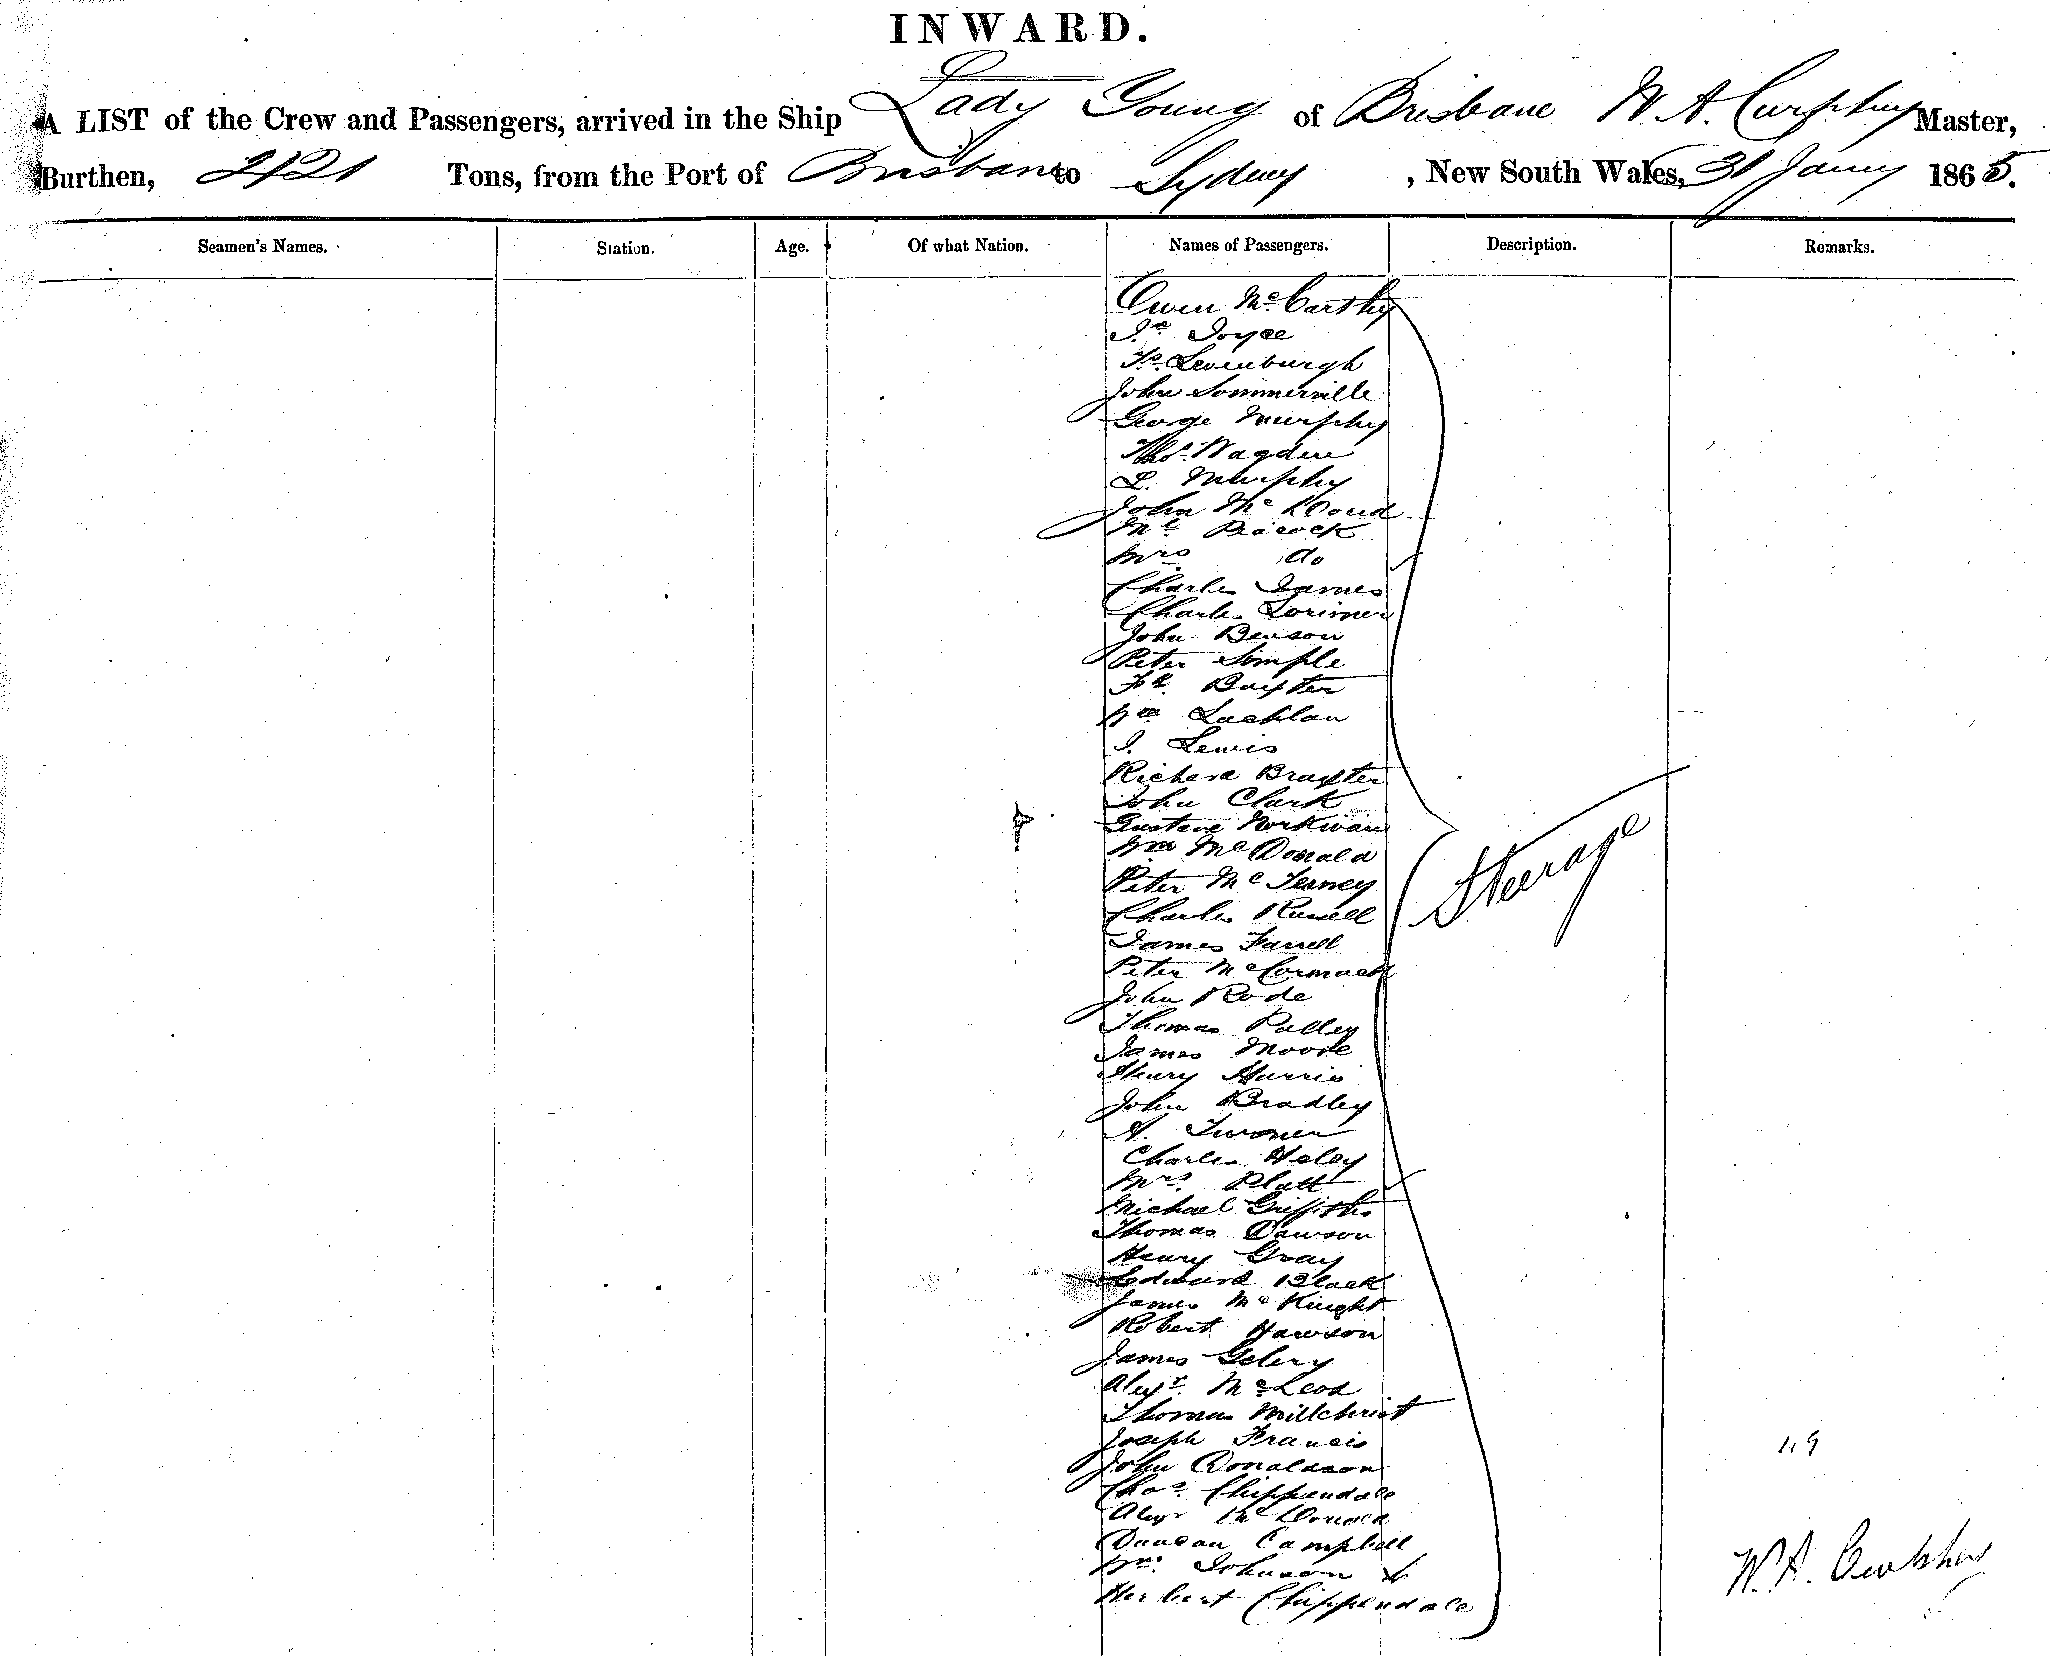 INWARD.
A LIST of the Crew and Passengers, arrived in the Ship Lady Young of Brisbane W. A. Curphey Master,
Burthen, 421 Tons, from the Port of Brisbane to Sydney , New South Wales, 31 Jany 1865.
Seamen's Names. Station. Age. Of what Nation. Names of Passengers. Description. Remarks.
Owen McCarthy
Js Joyce
Levenburgh
John Sommerville
George Murphy
Thos Wagdin
L. Murphy
John McDoud
Mr Peacock
Mrs do
Charles James
Charles Lorimer
John Benson
Peter Simple
Baxter
Wm Lachlan
J. Lewis
Richard Braxter
John Clark
Gustave Norkwan
Wm McDonald
Peter McTerney
Charles Russell
James Farrell
Peter McCormack
John Rode
Steerage
Thomas Pulley
James Moore
Henry Harris
John Bradley
A. Turner
Charles Heley
Mrs Platt
Michael Griffiths
Thomas Dawson
Henry Gray
Edward Black
James McKnight
Robert Hawson
James Gelery
Alexr McLeod
Thomas Millchrist
Joseph Francis
John Donaldson
Chas Chippendale
Alexr McDonald
Duncan Campbell
Wm Johnson
Herbert Chippendale
119
W. A. Curphey